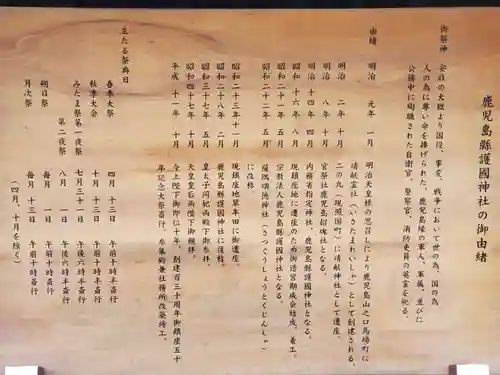 鹿児島縣護國神社の御由緒
御祭神
安政の大獄より国役、事変、戦争において世の為、国の為
人の為に尊い命を捧げられた、鹿児島縁の軍人、軍属、並びに
公務中に殉職された自衛官、警察官、消防吏員の英霊を祀る。
由緒
明治 元年 一月 明治天皇様の思召しにより鹿児島山之口馬場町に
靖献霊社(いさたまれいしゃ)として創建される。
明治 二年 十月 二の丸(現照国町)に靖献神社として遷座。
明治 八年 十月 官祭社鹿児島招魂社となる。
明治 十四年 四月 内務省指定神社、鹿児島縣護國神社となる。
昭和 十六年 八月 現鎮座地に遷座のため御造営期成会結成、着工。
昭和二十一年 五月 宗教法人鹿児島縣護國神社となる。
昭和二十二年 五月 薩隅頌徳神社(さつぐうしょうとくじんしゃ)
に改称
昭和二十三年十一月 現鎮座地草牟田に御遷座。
昭和二十八年 二月 鹿児島縣護國神社に復称。
昭和三十七年 五月 皇太子同妃両殿下御参拝。
昭和四十七年 十月 天皇皇后両陛下御親拝。
平成 十一年 十月 今上陛下御即位十年、創建百三十周年御鎮座五十
年記念大祭斎行、参集殿兼社務所改築竣工。
主たる祭典日
春季大祭 四月 十三日 午前十時半斎行
秋季大会 十月 十三日 午前十時半斎行
みたま祭第一夜祭 七月三十一日 午後六時半斎行
第二夜祭 八月 一日 午後六時半斎行
朔日祭 毎月 一日 午前 十時斎行
月次祭 毎月 十三日 午前十時斎行
(四月、十月を除く)